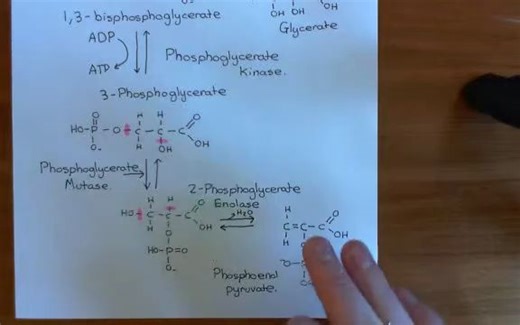 1,3-bisphosphoglycerate
OH OH OH
Glycerate
ADP
ATP
Phosphoglycerate
Kinase.
3-Phosphoglycerate
O H H O
HO-P-O-C-C-C
O- H OH OH
Phosphoglycerate
Mutase.
2-Phosphoglycerate
Enolase
H2O
H H O
HO-C-C-C
H O OH
HO-P=O
O-
H O
C=C-C
H OH
Phosphoenol
pyruvate.